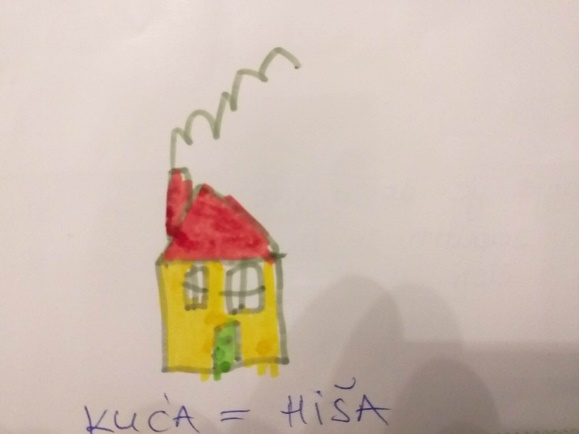 KUĆA = HiŠA